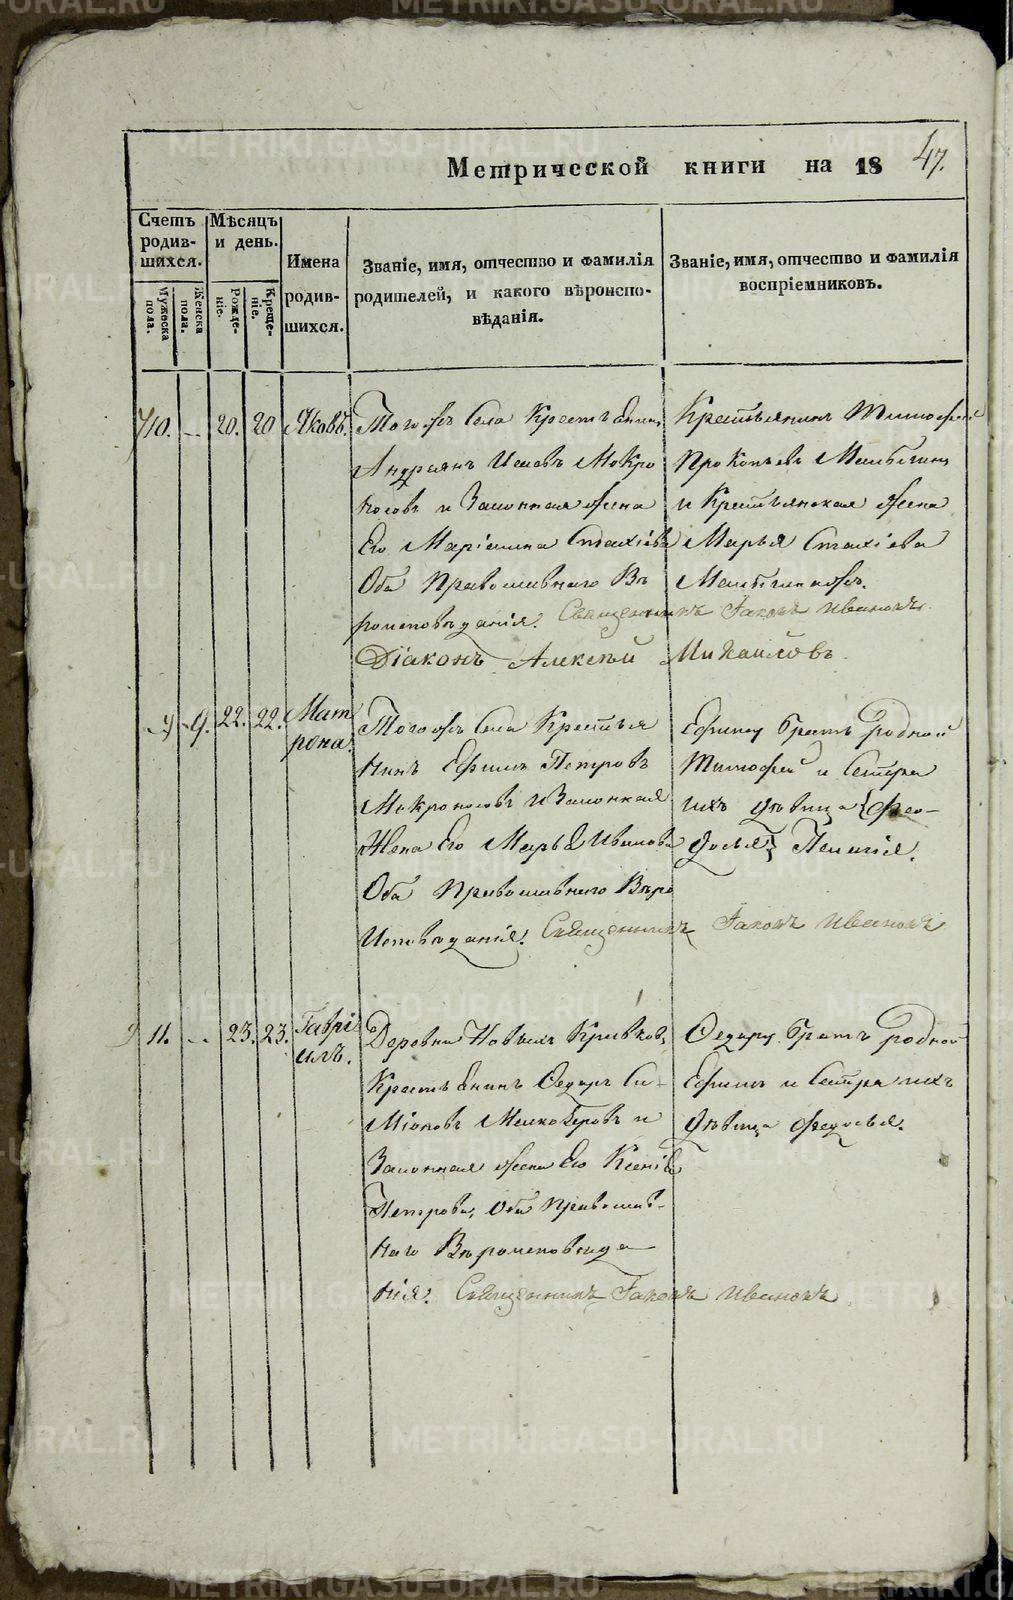 Метрической книги на 18 47.
Счетъ родив-шихся.
Мѣсяцъ и день.
Имена родив-шихся.
Званіе, имя, отчество и фамилія родителей, и какого вѣроиспо-вѣданія.
Званіе, имя, отчество и фамилія воспріемниковъ.
Мужеска пола.
Женска пола.
Рожде-ніе.
Креще-ніе.
10. 20. 20 Яковъ.
Тогожъ Села Крестьенинъ
Андреянъ Мокро
носовъ и Законная Жена
Его Маріамна Стахіева
Оба Православнаго Вѣ
роисповѣданія. Священникъ Іаковъ Ивановъ
Діаконъ Алексѣй Михайловъ.
Крестьянинъ Тимофей
Прокопьевъ
и Крестьянская Жена
Марья Стахіева
9. 22. 22. Мат
рона.
Тогожъ Села Крестья
нинъ Ефимъ Петровъ
Мокроносовъ и Законная
Жена Его Марья Иванова
Оба Православнаго Вѣро
Исповѣданія. Священникъ Іаковъ Ивановъ
Ефиму братъ родной
Тимофей и Сестра
ихъ дѣвица Фео-
досья Пелагія.
11. 23. 23. Гаврі
илъ.
Деревни Новыхъ Кривков,
Крестьенинъ Федоръ Си-
міоновъ и
Законная Жена Его Ксенія
Петрова, Оба Православ-
наго Вѣроисповеда
нія. Священникъ Іаковъ Ивановъ
Федору братъ родной
Ефимъ и Сестра ихъ
дѣвица Федосья.
METRIKI.GASO-URAL.RU